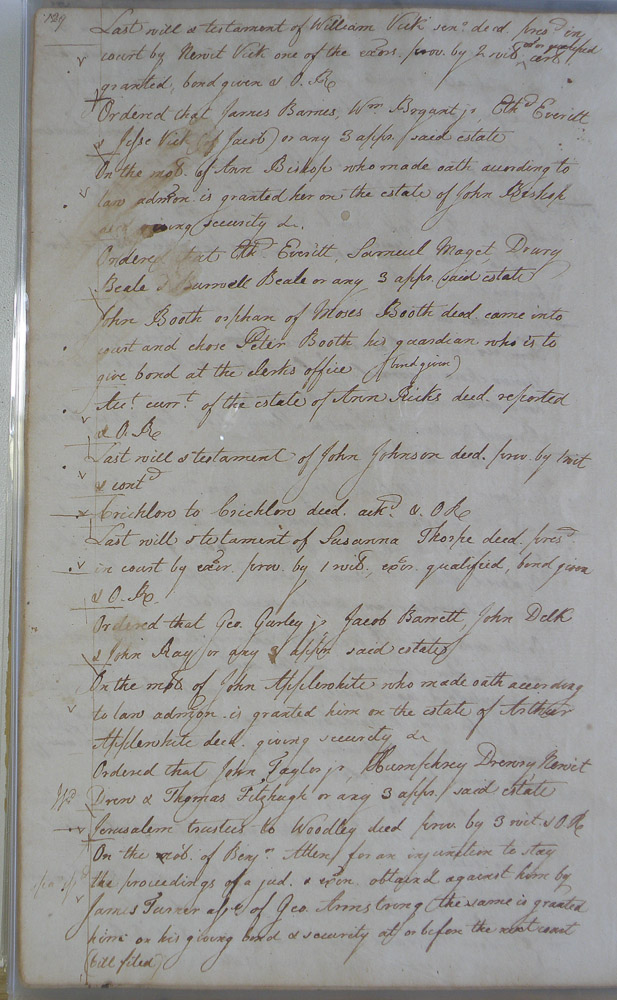 Last will & testament of William Vick senr. decd. presd. in
court by Newit Vick one of the exors. prov. by 2 wits. exor qualified cert
granted, bond given & O. R
Ordered that James Barnes, Wm. Bryant jr, Ethd. Everitt
& Jesse Vick (of Jacob) or any 3 appr. said estate
On the mot. of Ann Bishop who made oath according to
law admon. is granted her on the estate of John Bishop
giving security &c.
Ordered that Ethd. Everitt, Samuel Maget Drury
Beale & Burwell Beale or any 3 appr. said estate
John Booth orphan of Moses Booth decd. came into
court and chose Peter Booth his guardian who is to
give bond at the clerks office (bond given)
Act. currt. of the estate of Ann Ricks decd. reported
& O. R
Last will & testament of John Johnson decd. prov. by 1 wit
& contd
Crichlow to Crichlow deed. ackd. & O R
Last will & testament of Susanna Thorpe decd. presd.
in court by exor. prov. by 1 wit., exor. qualified, bond given
& O. R.
Ordered that Geo. Gurley jr Jacob Barrett, John Delk
& John Ray or any 3 appr. said estate
On the mot. of John Applewhite who made oath according
to law admon. is granted him on the estate of Arthur
Applewhite decd. giving security &c
Ordered that John Taylor jr, Humphrey Drewry Newit
Drew & Thomas Fitzhugh or any 3 appr. said estate
Jerusalem trustees to Woodley deed prov. by 3 wit. & O R
On the mot. of Benjn. Atten for an injunction to stay
the proceedings of a jud. & exon. obtained against him by
James Turner asse of Geo. Armstrong the same is granted
him on his giving bond & security at or before the next court
bill filed